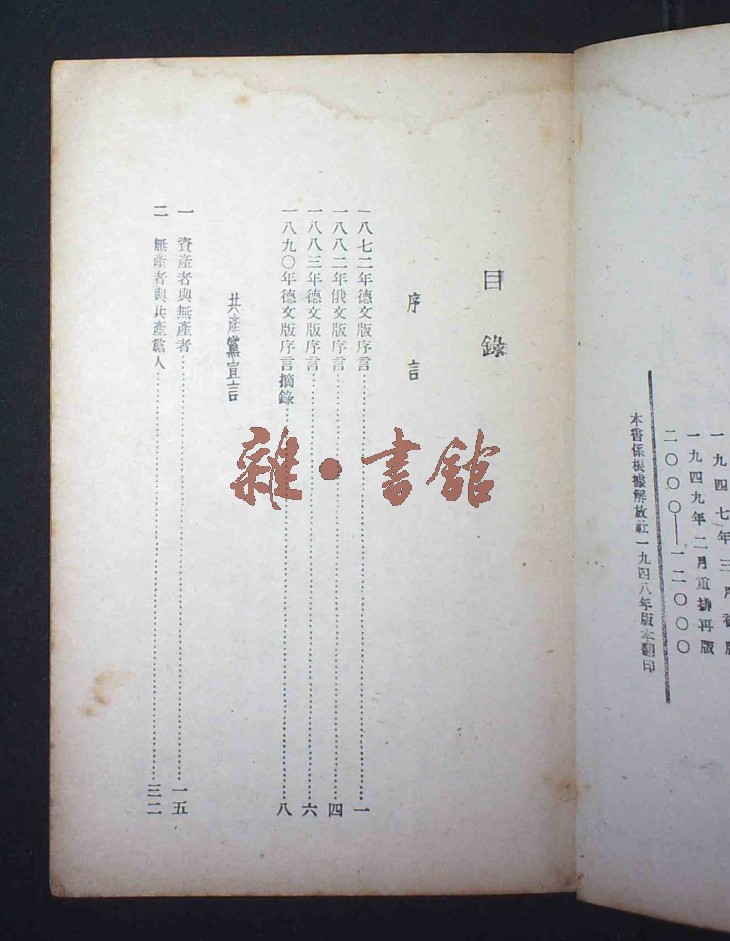 一九四七年三月
一九四九年二月重排再版
二〇〇〇—一二〇〇〇
本書係根據解放社一九四八年版本翻印
目錄
序言
一八七二年德文版序言……一
一八八二年俄文版序言……四
一八八三年德文版序言……六
一八九〇年德文版序言摘錄……八
共產黨宣言
一 資產者與無產者……一五
二 無產者與共產黨人……三二
雜·書館